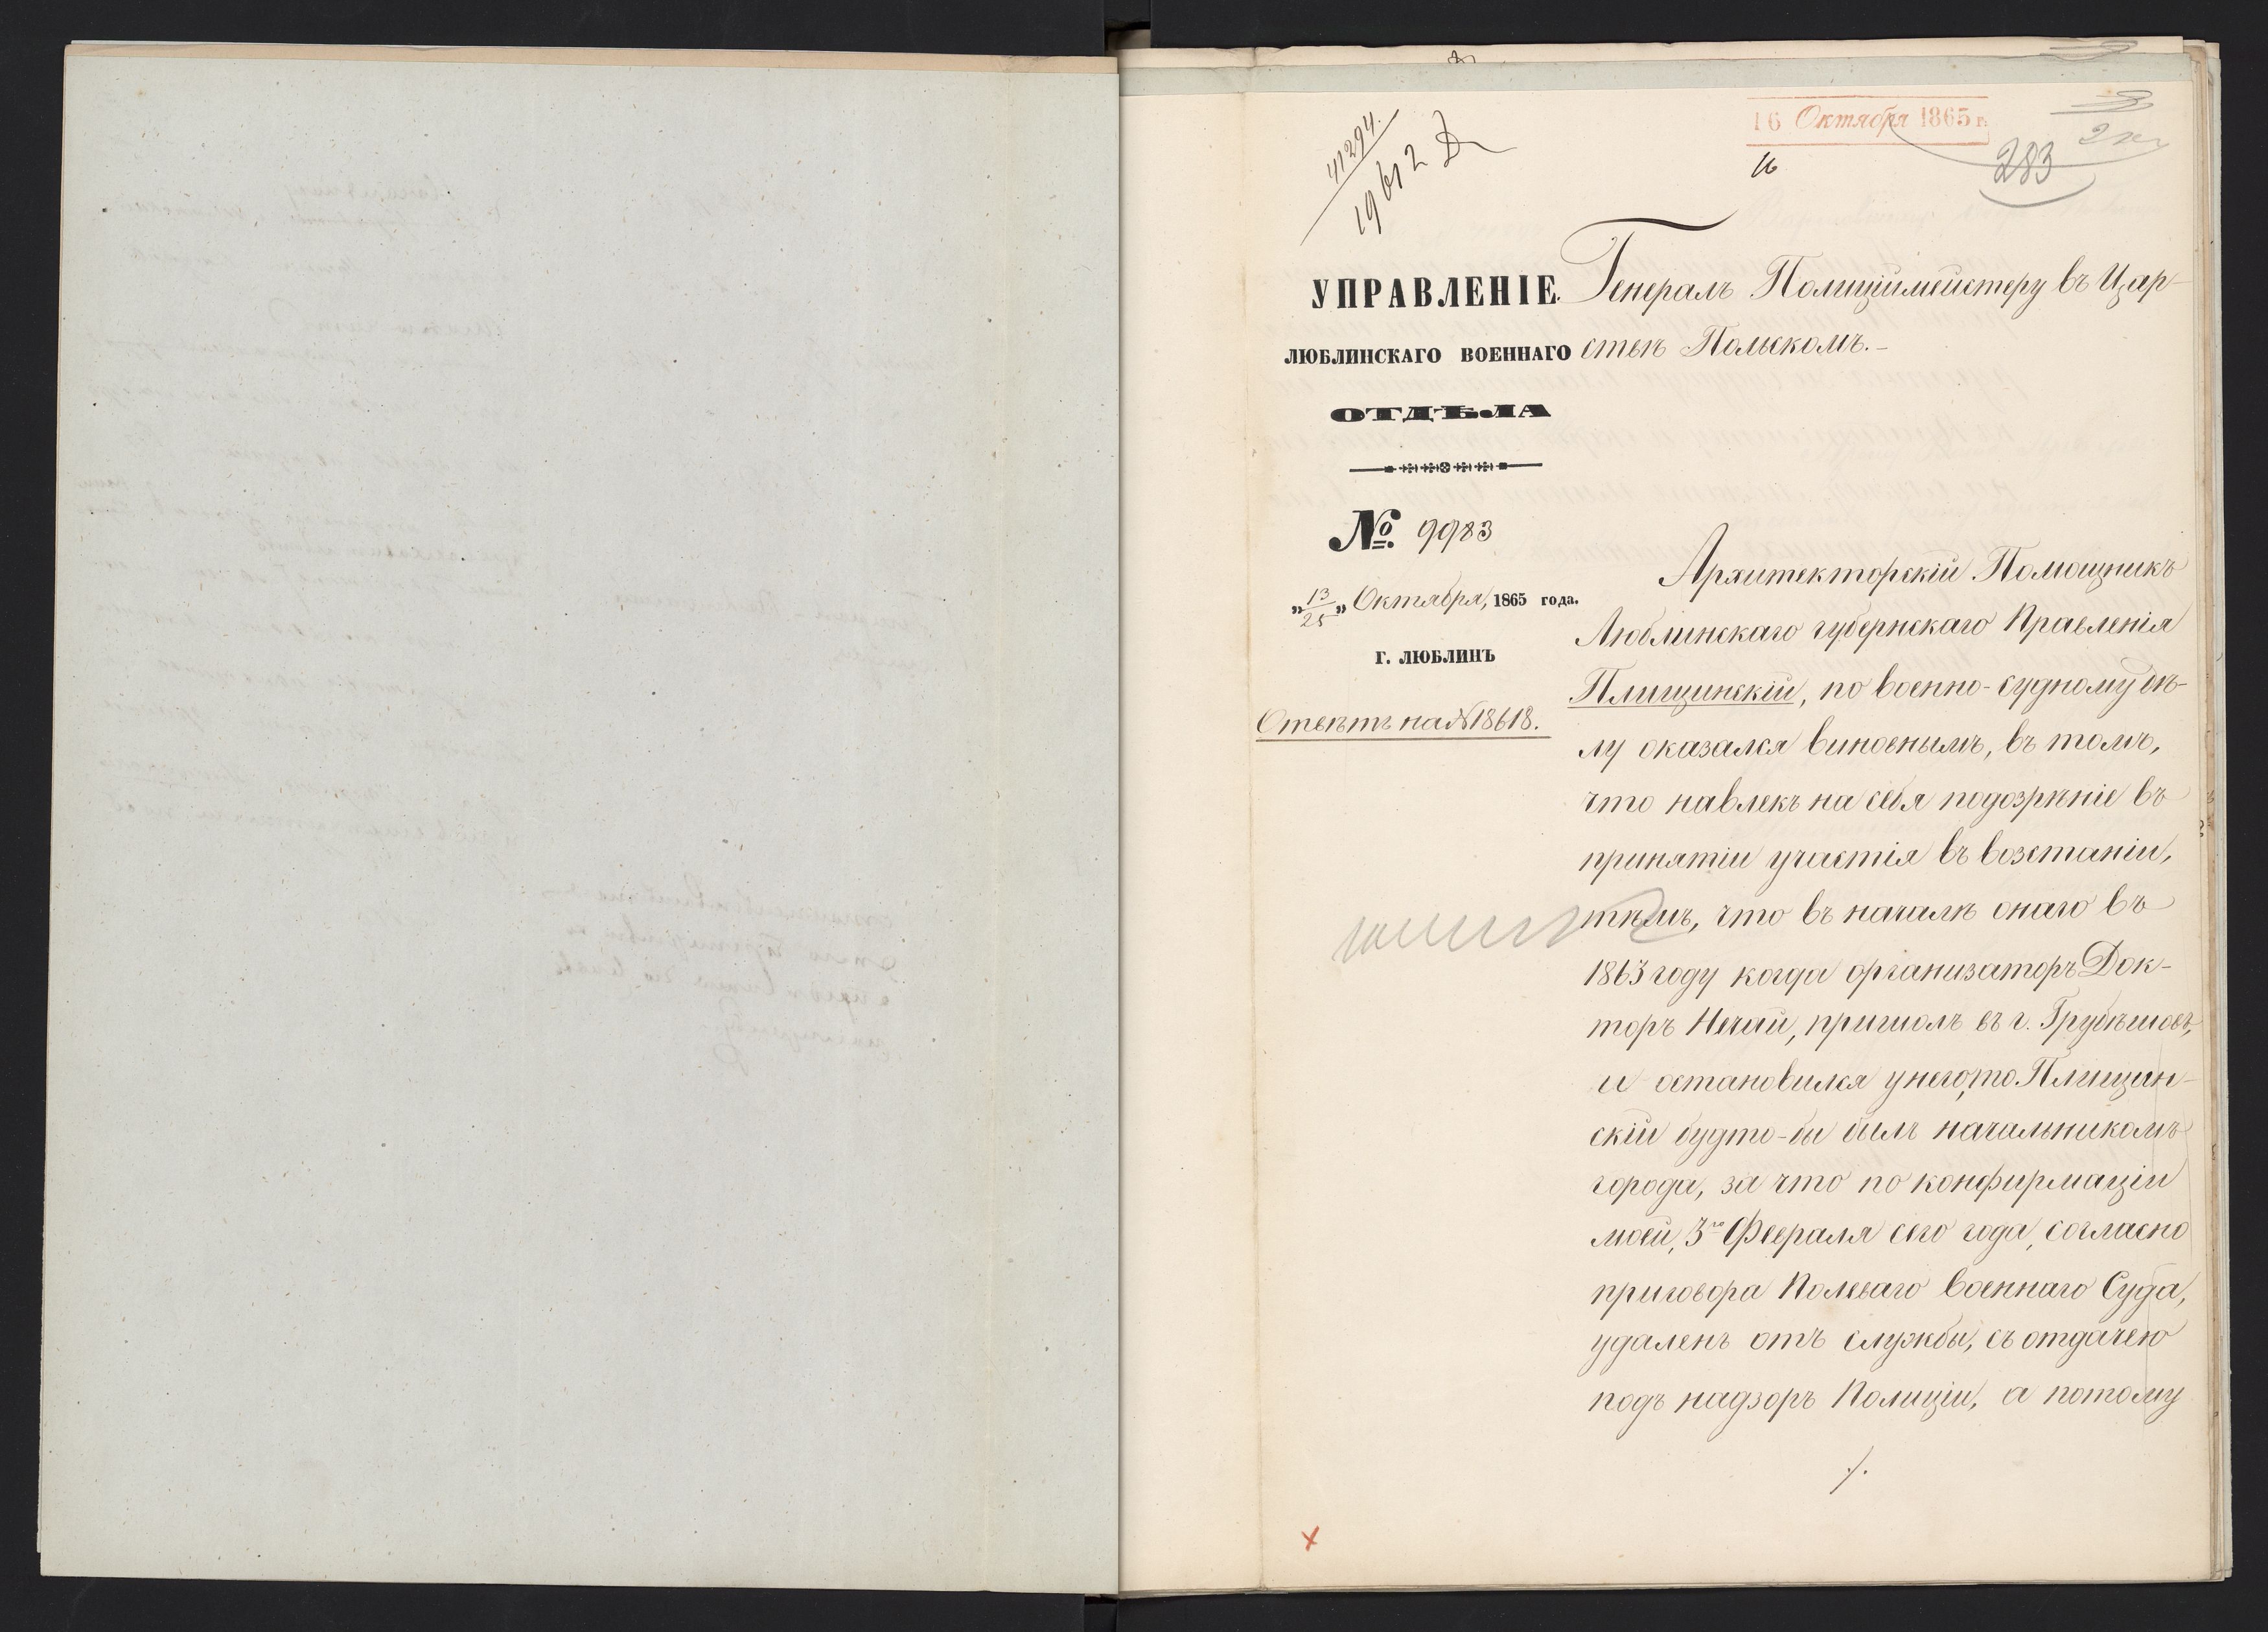 41294.
19612
16 Октября 1865 г.
16
283
УПРАВЛЕНІЕ
ЛЮБЛИНСКАГО ВОЕННАГО
ОТДѢЛА
№ 9983
„13/25„ Октября, 1865 года.
Г. ЛЮБЛИНЪ
Отвѣтъ на № 18618.
Генералъ Полиціймейстеру въ Цар-
ствѣ Польскомъ.-
Архитекторскій Помощникъ
Люблинскаго губернскаго Правленія
Плищинскій, по военно-судному дѣ-
лу оказался виновнымъ, въ томъ,
что навлекъ на себя подозрѣніе въ
принятіи участія въ возстаніи,
тѣмъ, что въ началѣ онаго въ
1863 году когда организаторъ Док-
торъ Нечай, пришолъ въ г. Грубѣшовъ,
и остановился у него, то Плищин-
скій будто-бы былъ начальникомъ
города, за что по конфирмаціи
моей, 3го Февраля сего года, согласно
приговора Полеваго военнаго Суда,
удаленъ отъ службы, съ отдачею
подъ надзоръ Полиціи, а потому
./.